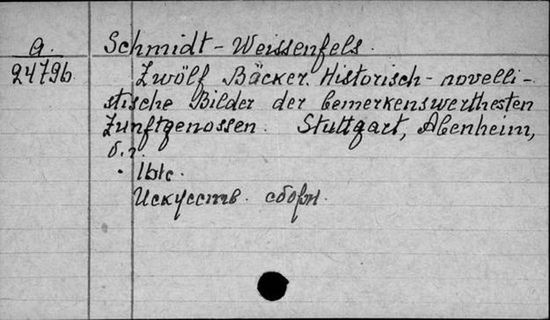 A. Schmidt-Weissenfels.
24796 Zwölf Bäcker. Historisch-novelli-
stische Bilder der bemerkenswerthesten
Zunftgenossen. Stuttgart, Abenheim,
б.г.
Искусств. сборн.